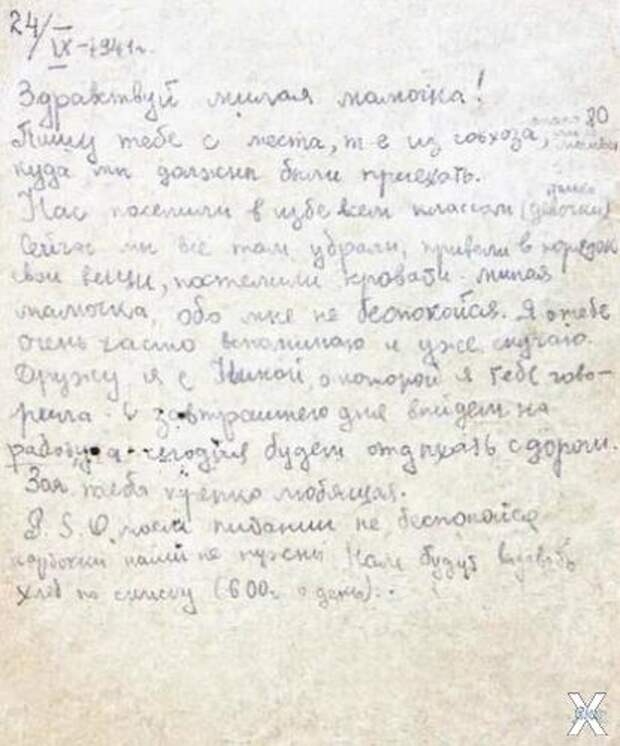 24/IX-1941г.
Здравствуй милая мамочка!
Пишу тебе с места, т е из совхоза, 80
куда мы должны были приехать.
Нас поселили в избе всем классом (только девочки)
Сейчас мы всё там убрали, привели в порядок
свои вещи, постелили кровати. Милая
мамочка, обо мне не беспокойся. Я о тебе
очень часто вспоминаю и уже скучаю.
Дружу я с Никой, о которой я тебе гово-
рила. С завтрашнего дня выйдем на
работу, а сегодня будем отдыхать с дороги.
Зоя тебя крепко любящая.
P.S. О моём питании не беспокойся
карточки наши не нужны Нам будут выдавать
хлеб по списку (600г. в день).